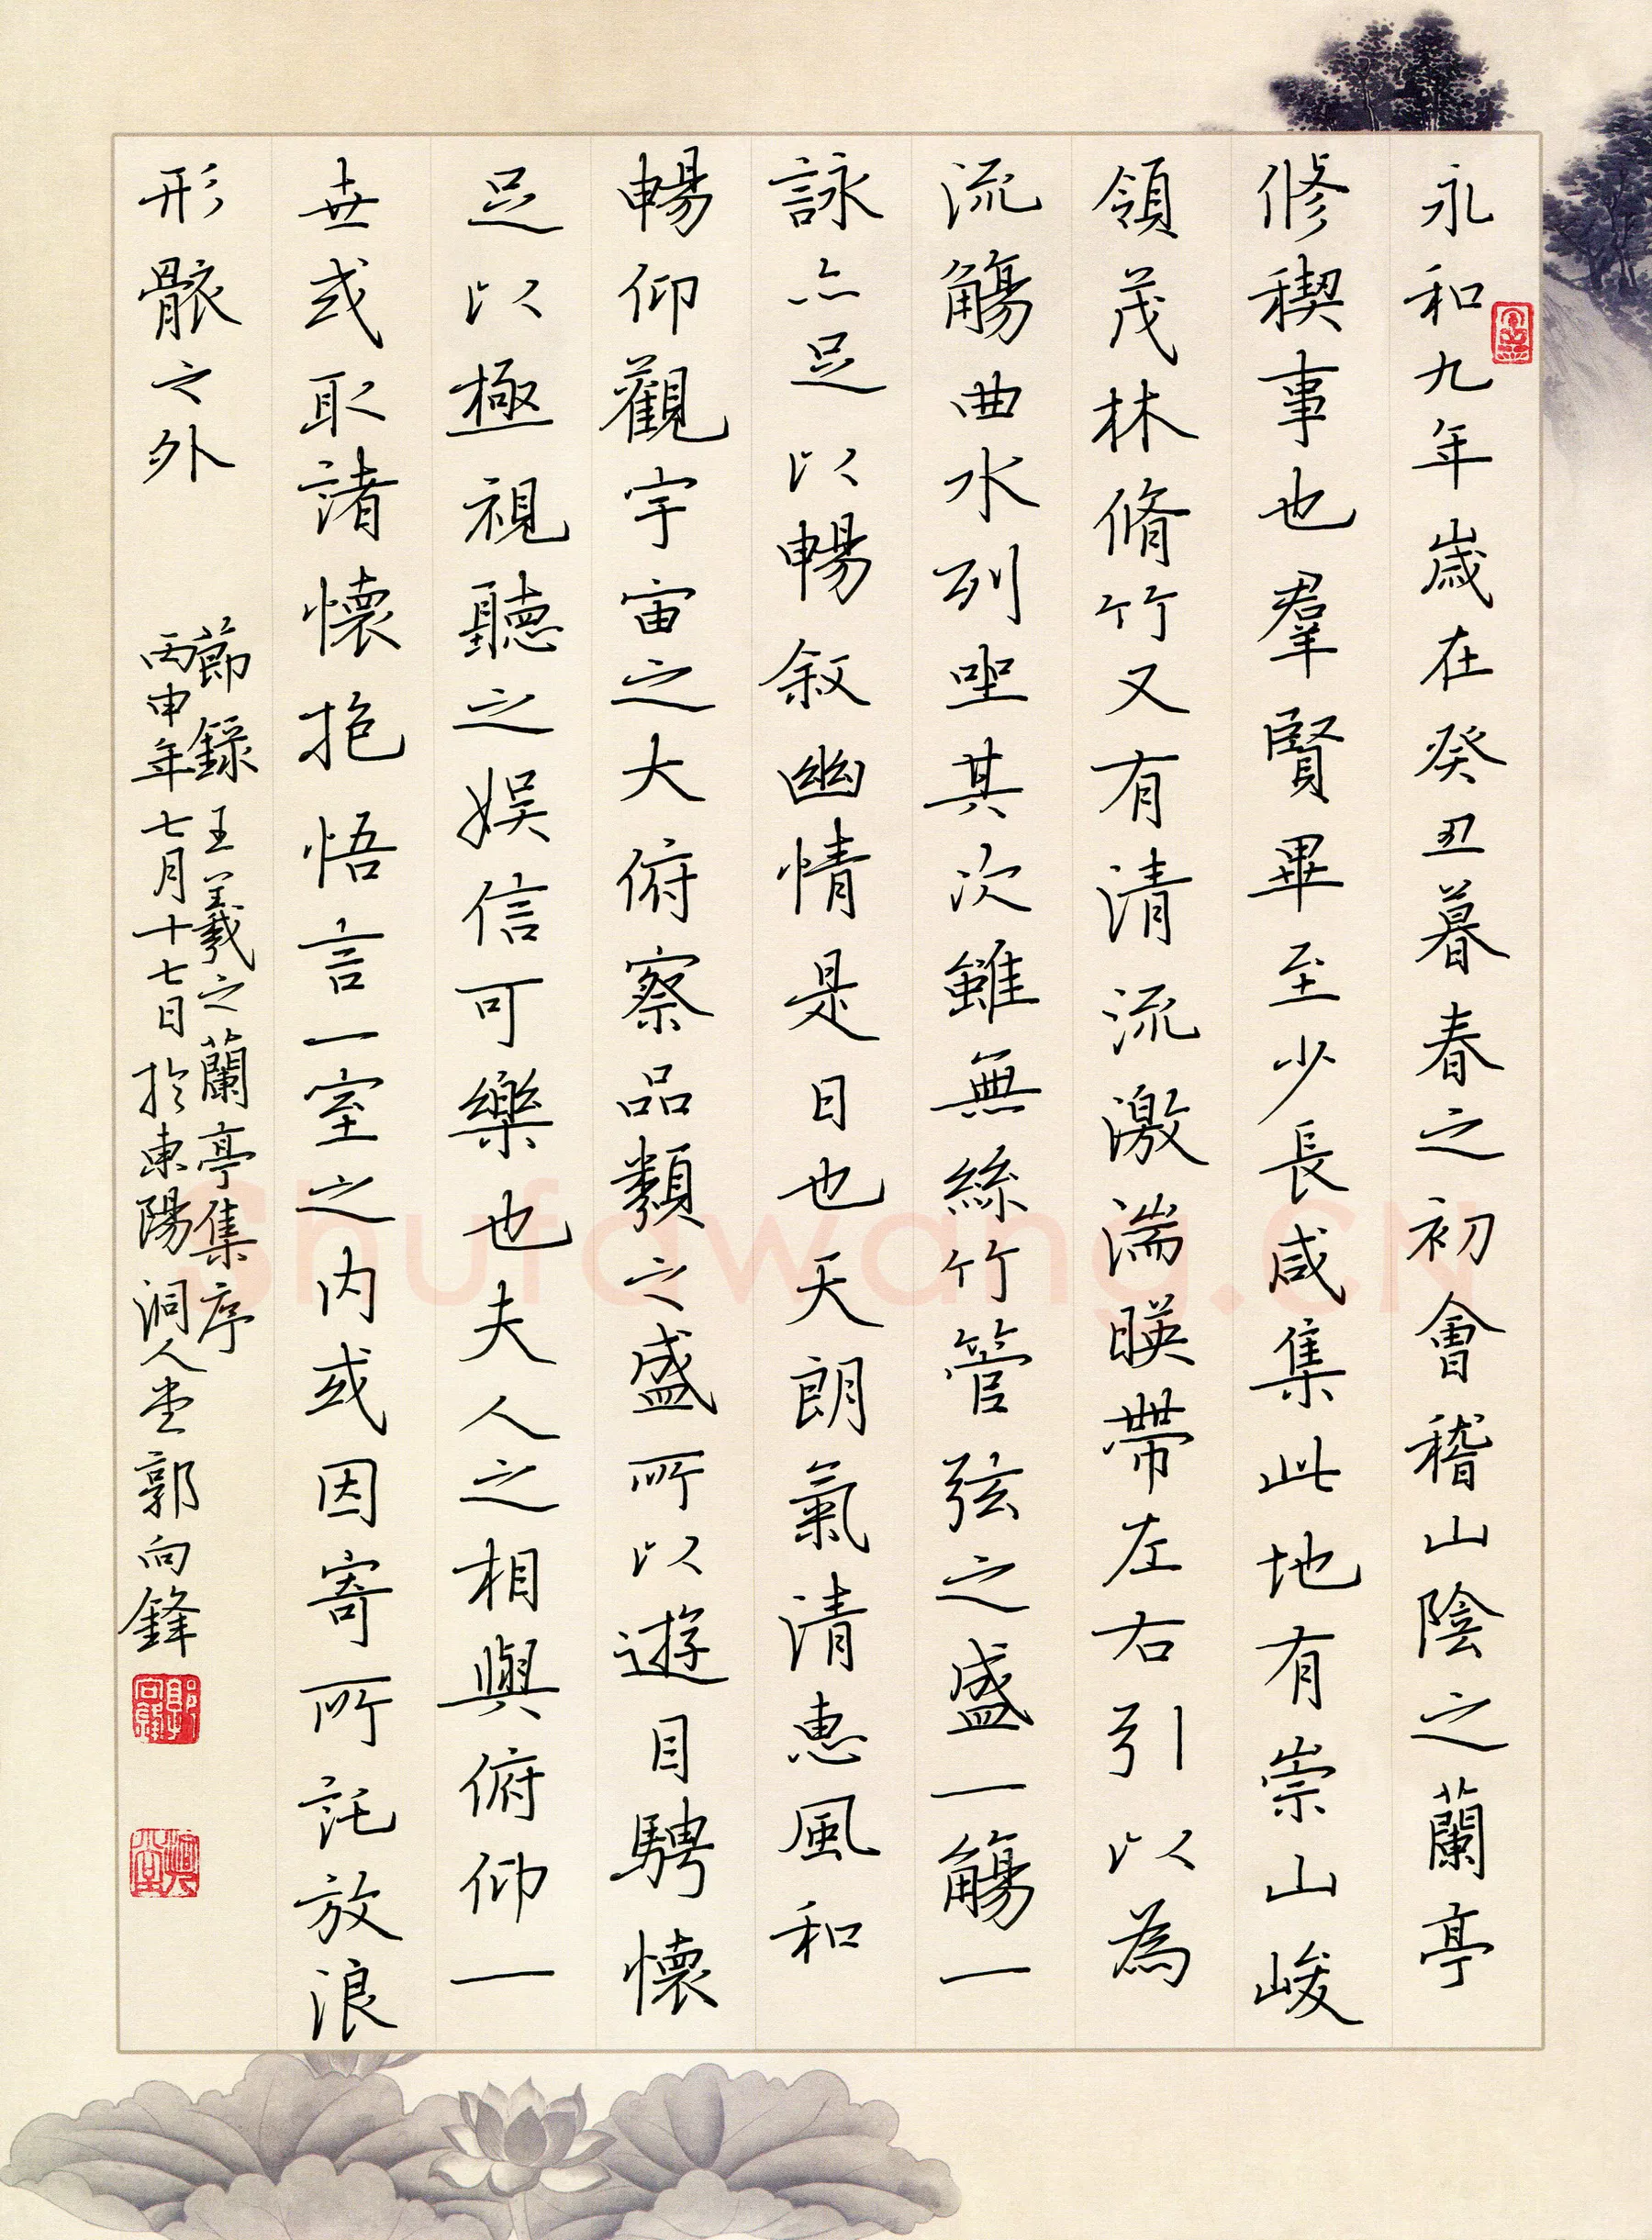 永和九年歲在癸丑暮春之初會稽山陰之蘭亭
修稧事也羣賢畢至少長咸集此地有崇山峻
領茂林脩竹又有清流激湍暎帶左右引以為
流觴曲水列坐其次雖無絲竹管弦之盛一觴一
詠亦足以暢敘幽情是日也天朗氣清惠風和
暢仰觀宇宙之大俯察品類之盛所以遊目騁懷
足以極視聽之娛信可樂也夫人之相與俯仰一
世或取諸懷抱悟言一室之內或因寄所託放浪
形骸之外
節錄王羲之蘭亭集序
丙申年七月十七日於東陽洞人堂郭向鋒
Shufawang.CN